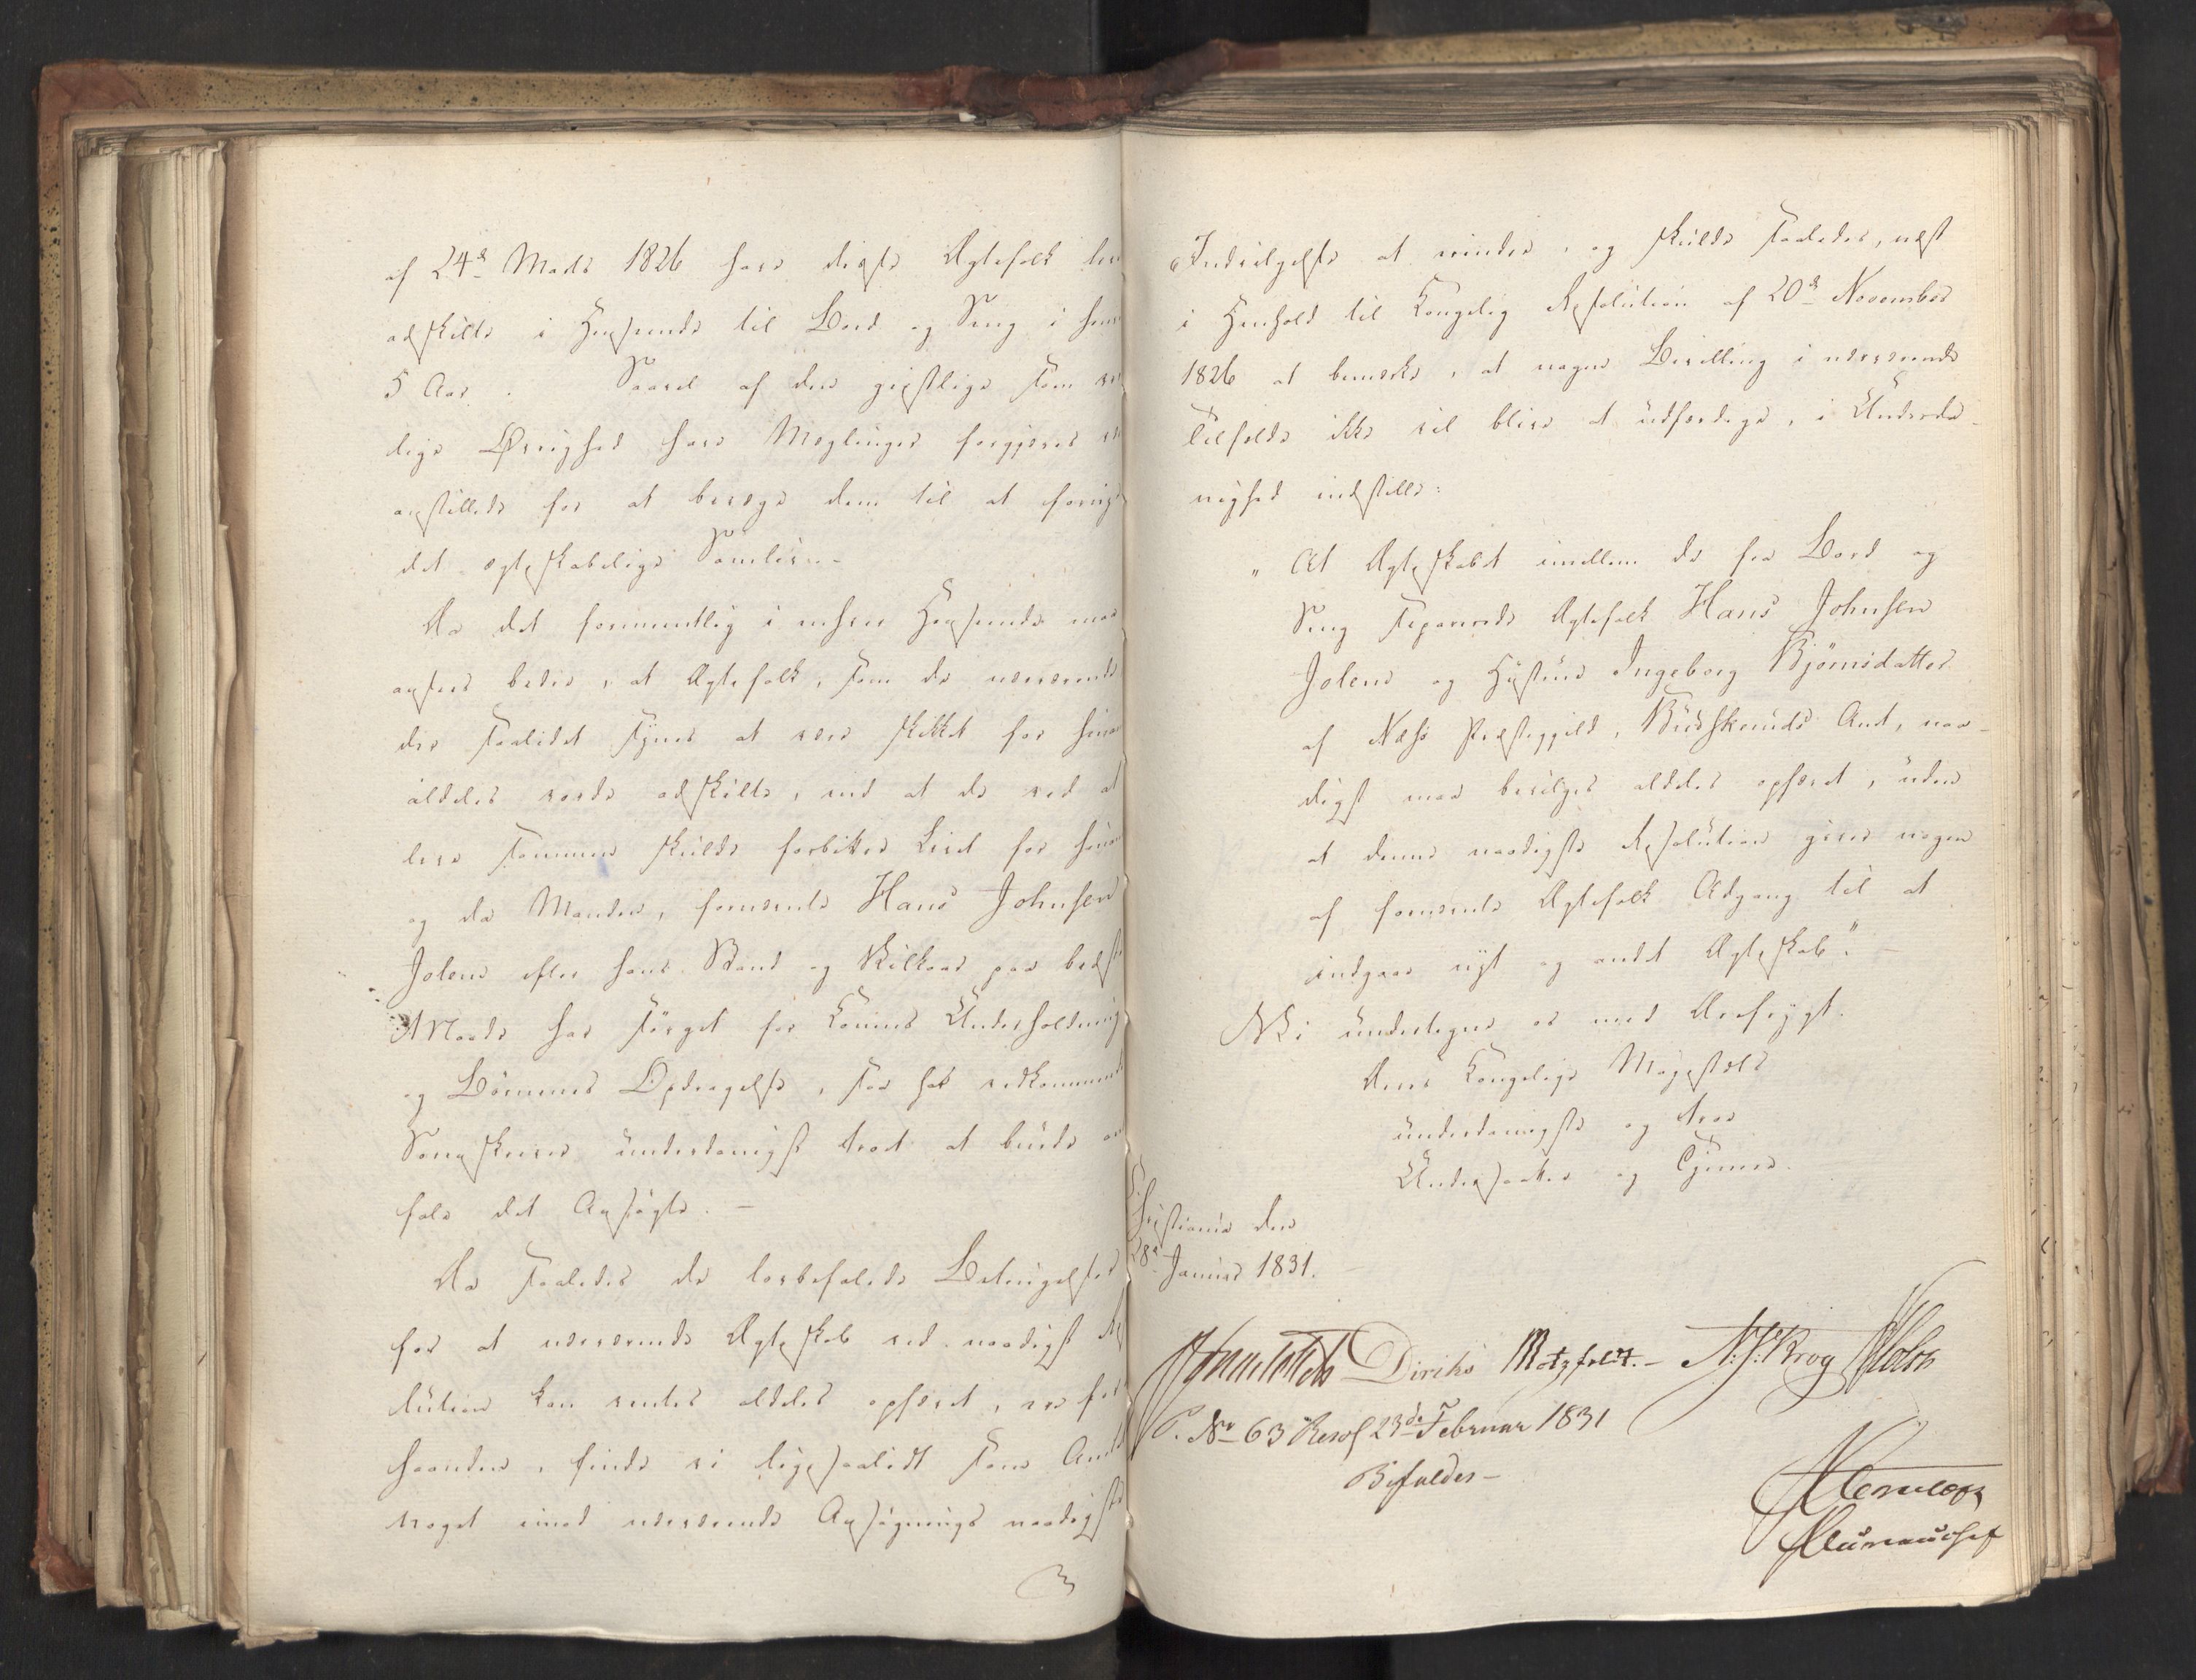 af 24de Marts 1826 have disse Ægtefolk lev
adskilte i Henseende til Bord og Seng i henv
5 Aar. Saavel af den geistlige som ver
lige Øvrighed have Mæglinger forgjeves væ
anstillede for at bevæge dem til at forny
det ægteskabelige Samliv. –
Da det formeentlig i enhver Henseende maa
ansees bedre, at Ægtefolk, som de nærværende
der saalidet synes at være skikket for hina
aldeles vorde adskilte, end at de ved at
leve sammen skulde forbittre Livet for hina
og da Manden, fornævnte Hans Johnsen
Jolene efter hans Stand og Vilkaar paa bedst
Maade har sørget for Konens Underholdning
og Børnenes Opdragelse, saa har vedkommende
Sorenskriver underdanigst troet at burde an
fale det Ansøgte. –
Da saaledes de lovbefalede Betingelser
for at nærværende Ægteskab ved naadigst Reso
lution kan vorde aldeles ophævet, ere for
haanden, finde vi ligesaalidt som Amtet
Noget imod nærværende Ansøgnings naadigste
Indvilgelse at erindre, og skulde saaledes, næst
i Henhold til Kongelig Resolution af 20de November
1826 at bemærke, at nogen Bevilling i nærværende
Tilfælde ikke vil blive at udfærdige, i Underda-
nighed indstille:
„At Ægteskabet imellem de fra Bord og
Seng separerede Ægtefolk Hans Johnsen
Jolene og Hustrue Ingeborg Bjørnsdatter
af Næss Præstegjeld, Budskeruds Amt, naa-
digst maa bevilges aldeles ophævet, uden
at denne naadigste Resolution giver nogen
af fornævnte Ægtefolk Adgang til at
indgaae nyt og andet Ægteskab“. –
Vi undertegne os med Ærefrygt.
Deres Kongelige Majestæts
underdanigste og troe
Undersaatter og Tjenere.
Christiania den
28de Januar 1831.
Diriks Motzfeldt. – N. J. Krog Holst
P. No 63 Resol 23de Februar 1831
Bifaldes –